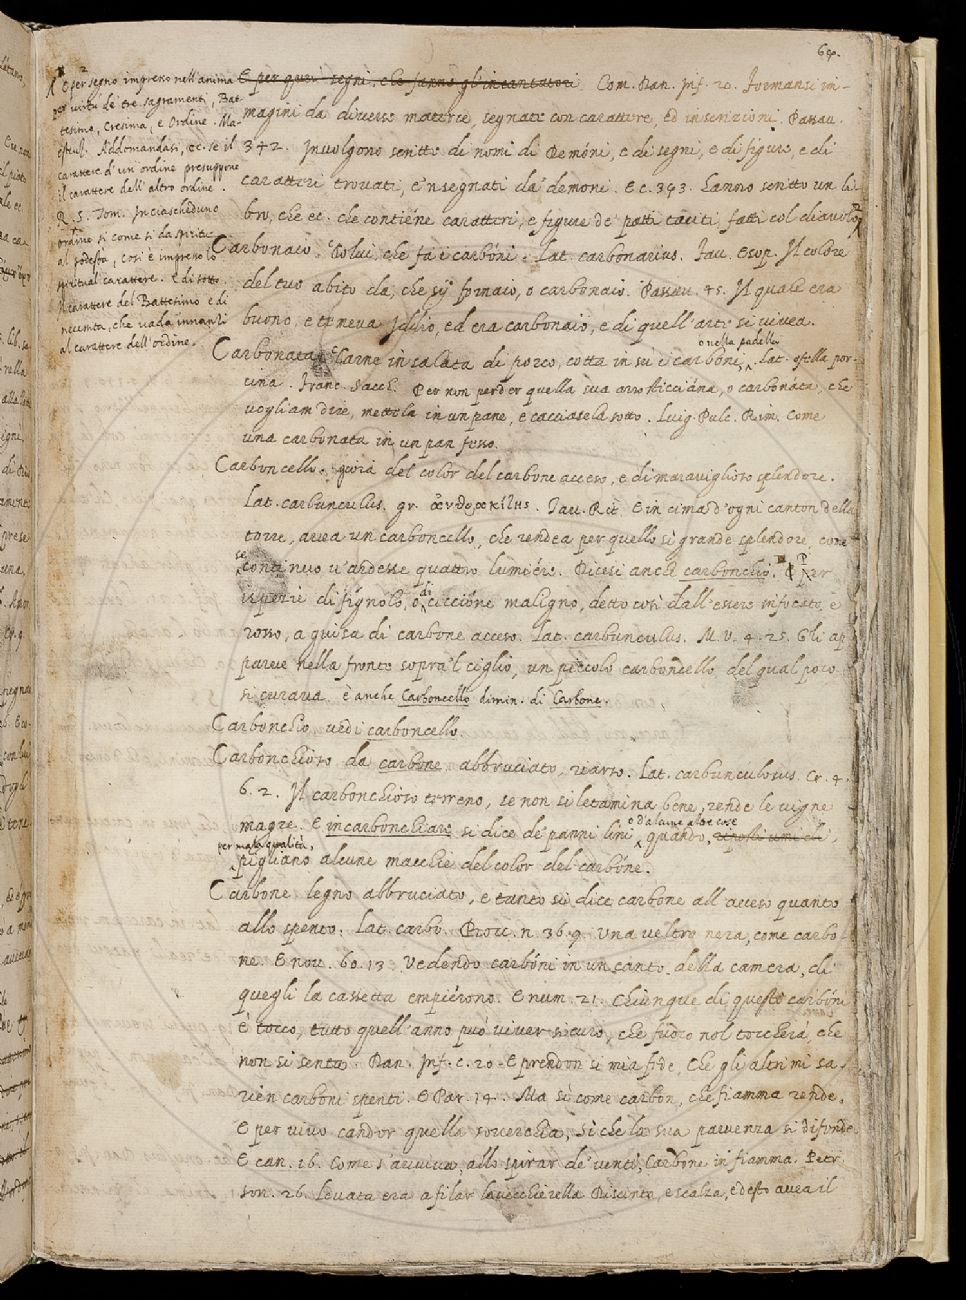 64.
E per segno impreso nell'anima
per virtù de' tre sagramenti, Bat-
tesimo, Cresima, e Ordine. Ma-
estruz. Addomandasi, ec. se il
carattere d'un'ordine presuppone
il carattere dell'altro ordine.
R. S. Tom. In ciascheduno
ordine si come si dà spiritu-
al podestà, così è impreso lo
spiritual carattere. E di sotto.
Il carattere del Battesimo è di
necessità, che vada innanzi
al carattere dell'ordine.
E per quei segni, che fanno gl'incantatori Com. Dan. Inf. 20. Formansi im-
magini da diverse materie, segnate con carattere, ed inscrizioni. Passav.
342. Involgono scritte di nomi di Demóni, e di segni, e di figure, e di
caratteri trovati, e 'nsegnati da' demoni. E c. 343. Hanno scritto un li-
bro, che ec. che contiéne caratteri, e figure de' patti taciti, fatti col diavolo
Carbonaio. Colui, che fa i carbóni. Lat. carbonarius. Fav. Esop. Il colore
del tuo abito dà, che sij fornaio, o carbonaio. Passav. 45. Il quale era
buono, e temeva Iddio, ed era carbonaio, e di quell'arte si vivea.
Carbonata. Carne insalata di porco, cotta in su' e carbóni, o nella padella. Lat. ofella por-
cina. Franc. Sacch. Per non perder quella sua arrosticciána, o carbonata, che
vogliam dire, mettila in un pane, e cacciatela sotto. Luig. Pulc. Rim. Come
una carbonata in un pan fesso.
Carboncello. gioia del color del carbone acceso, e di maraviglioso splendore.
Lat. carbunculus. gr. Tav. Rit. E in cima d'ogni canton della
torre, avea un carboncello, che rendea per quello sì grande splendore, come
se continuo v'ardesse quattro lumiére. Dicesi anche carbonchio. Per
ispezie di fignolo, o di ciccióne maligno, detto così dall'essere infocato, e
rosso, a guisa di carbone acceso. Lat. carbunculus. M. V. 4. 25. Gli ap
parve nella fronte sopra 'l ciglio, un piccolo carboncello, del qual poco
si curava. è anche Carboncello dimin. di Carbone.
Carbonchio, vedi carboncello
Carbonchioso da carbone, abbruciato, riarso. Lat. carbunculosus. Cr. 4.
6. 2. Il carbonchioso terreno, se non si letamina bene, rende le vigne
magre. E incarbonchiare si dice de' panni lini o d'alcune altre cose quando, riposti umidi,
per mala qualità, pigliano alcune macchie del color del carbóne.
Carbone legno abbruciato, e tanto si dice carbone all'acceso quanto
allo spento. Lat. carbo. Bocc. n. 36. 9. Una veltra nera, come carbo
ne. E nov. 60. 13. Vedendo carbóni in un canto della camera, di
quegli la cassetta empiérono. E num. 21. Chiunque di questi carbóni
è tocco, tutto quell'anno può viver sicuro, che fuoco nol toccherà, che
non si senta. Dan. Inf. c. 20. E prendon si mia fede, Che gli altri mi sa-
rien carboni spenti. E Par. 14. Ma sì come carbon, che fiamma rende,
E per vivo candor quella soverchia, Sì che la sua parvenza si difende
E can. 16. Come s'avviva, allo spirar de' venti, Carbone in fiamma. Petr.
son. 26. Levata era a filar la vecchierella Discinta, e scalza, e desto avea il